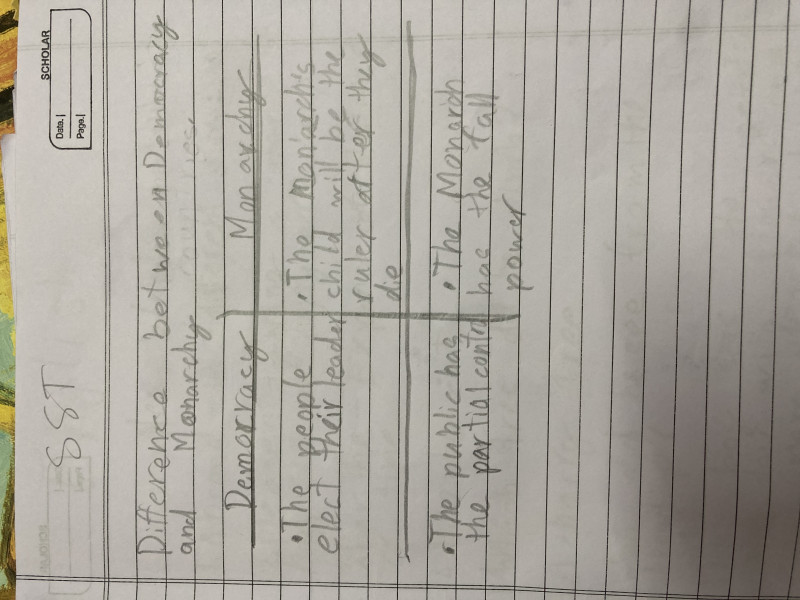 SCHOLAR
Date.
Page.
SST
Difference between Democracy
and Monarchy
Democracy
Monarchy
• The people
elect their leader
• The monarch's
child will be the
ruler after they
die
• The public has
the partial contrl
• The Monarch
has the full
power